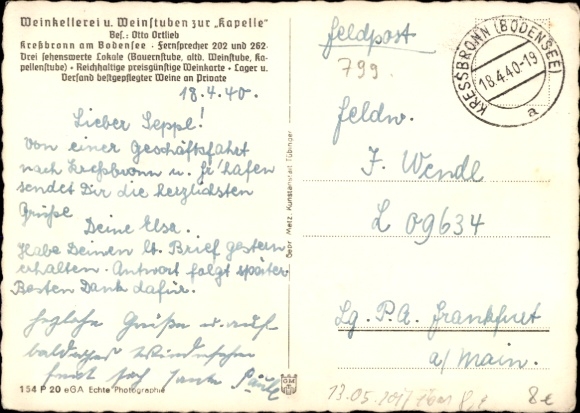 Weinkellerei u. Weinstuben zur „Kapelle"
Bes.: Otto Ortlieb
Kreßbronn am Bodensee · Fernsprecher 202 und 262
Drei sehenswerte Lokale (Bauernstube, altd. Weinstube, Ka-
pellenstube) · Reichhaltige preisgünstige Weinkarte · Lager u.
Versand bestgepflegter Weine an Private
18.4.40.
Lieber Seppl!
Von einer Geschäftsfahrt
nach Kreßbronn u. Fr'hafen
sendet Dir die herzlichsten
Grüße
Deine Elsa.
Habe Deinen lb. Brief gestern
erhalten. Antwort folgt später
Besten Dank dafür.
Herzliche Grüße u. auf
baldiges Wiedersehen
freut sich
154 P 20 eGA Echte Photographie
Gebr. Metz, Kunstanstalt Tübingen
Feldpost
799
KRESSBRONN (BODENSEE)
18.4.40-19
a
Feldw.
J. Wendl
L 09634
Lg. P.A. Frankfurt
a/Main.
13.05.2017
8€